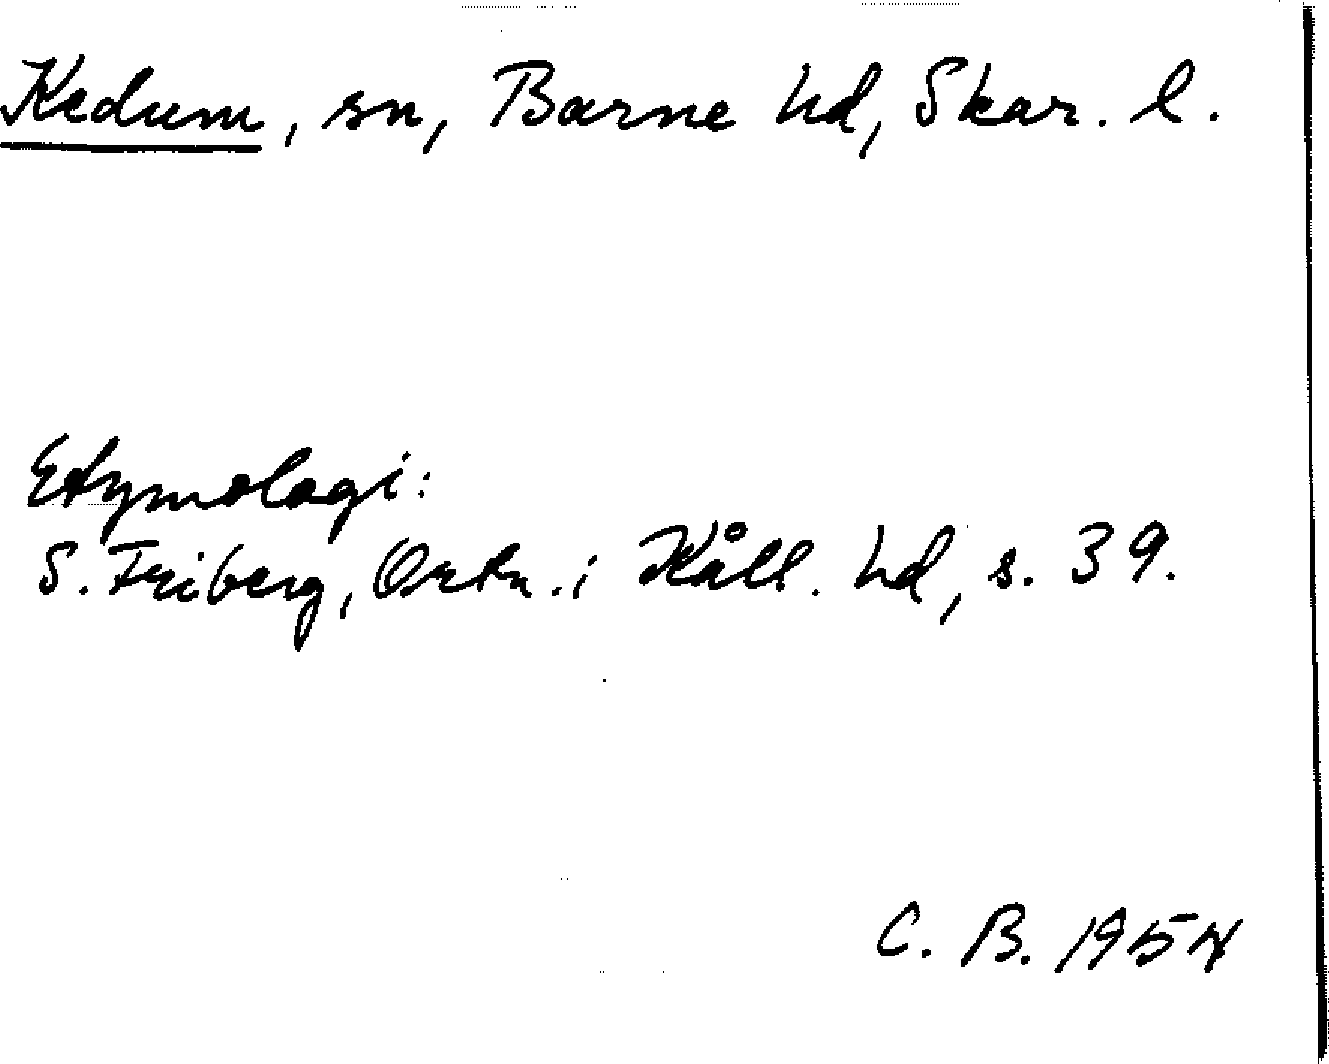 Kedum, sn, Barne hd, Skar. l.
Etymologi:
S. Friberg, Ortn. i Kåll. hd, s. 39.
C. B. 1954